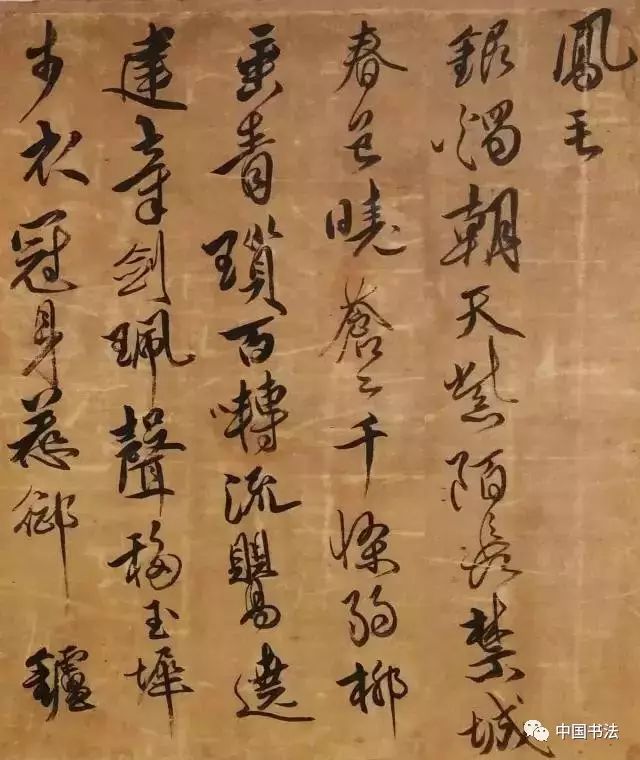 鳳毛
銀燭朝天紫陌長禁城
春色曉蒼〻千條弱柳
垂青瑣百囀流鶯遶
建章劍珮聲移玉墀
步衣冠身惹御鑪
中国书法